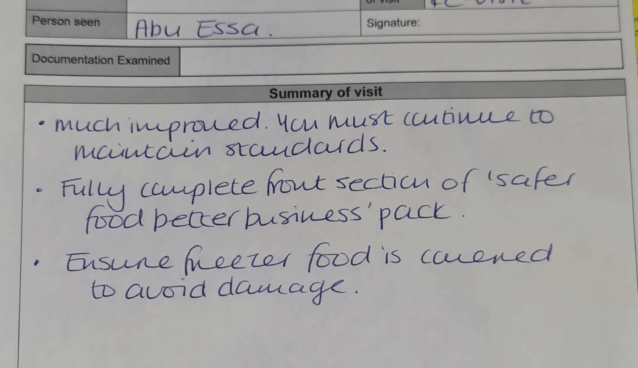 of visit
Person seen Abu Essa. Signature:
Documentation Examined
Summary of visit
• Much improved. You must continue to
maintain standards.
• Fully complete front section of 'safer
food better business' pack.
• Ensure freezer food is covered
to avoid damage.